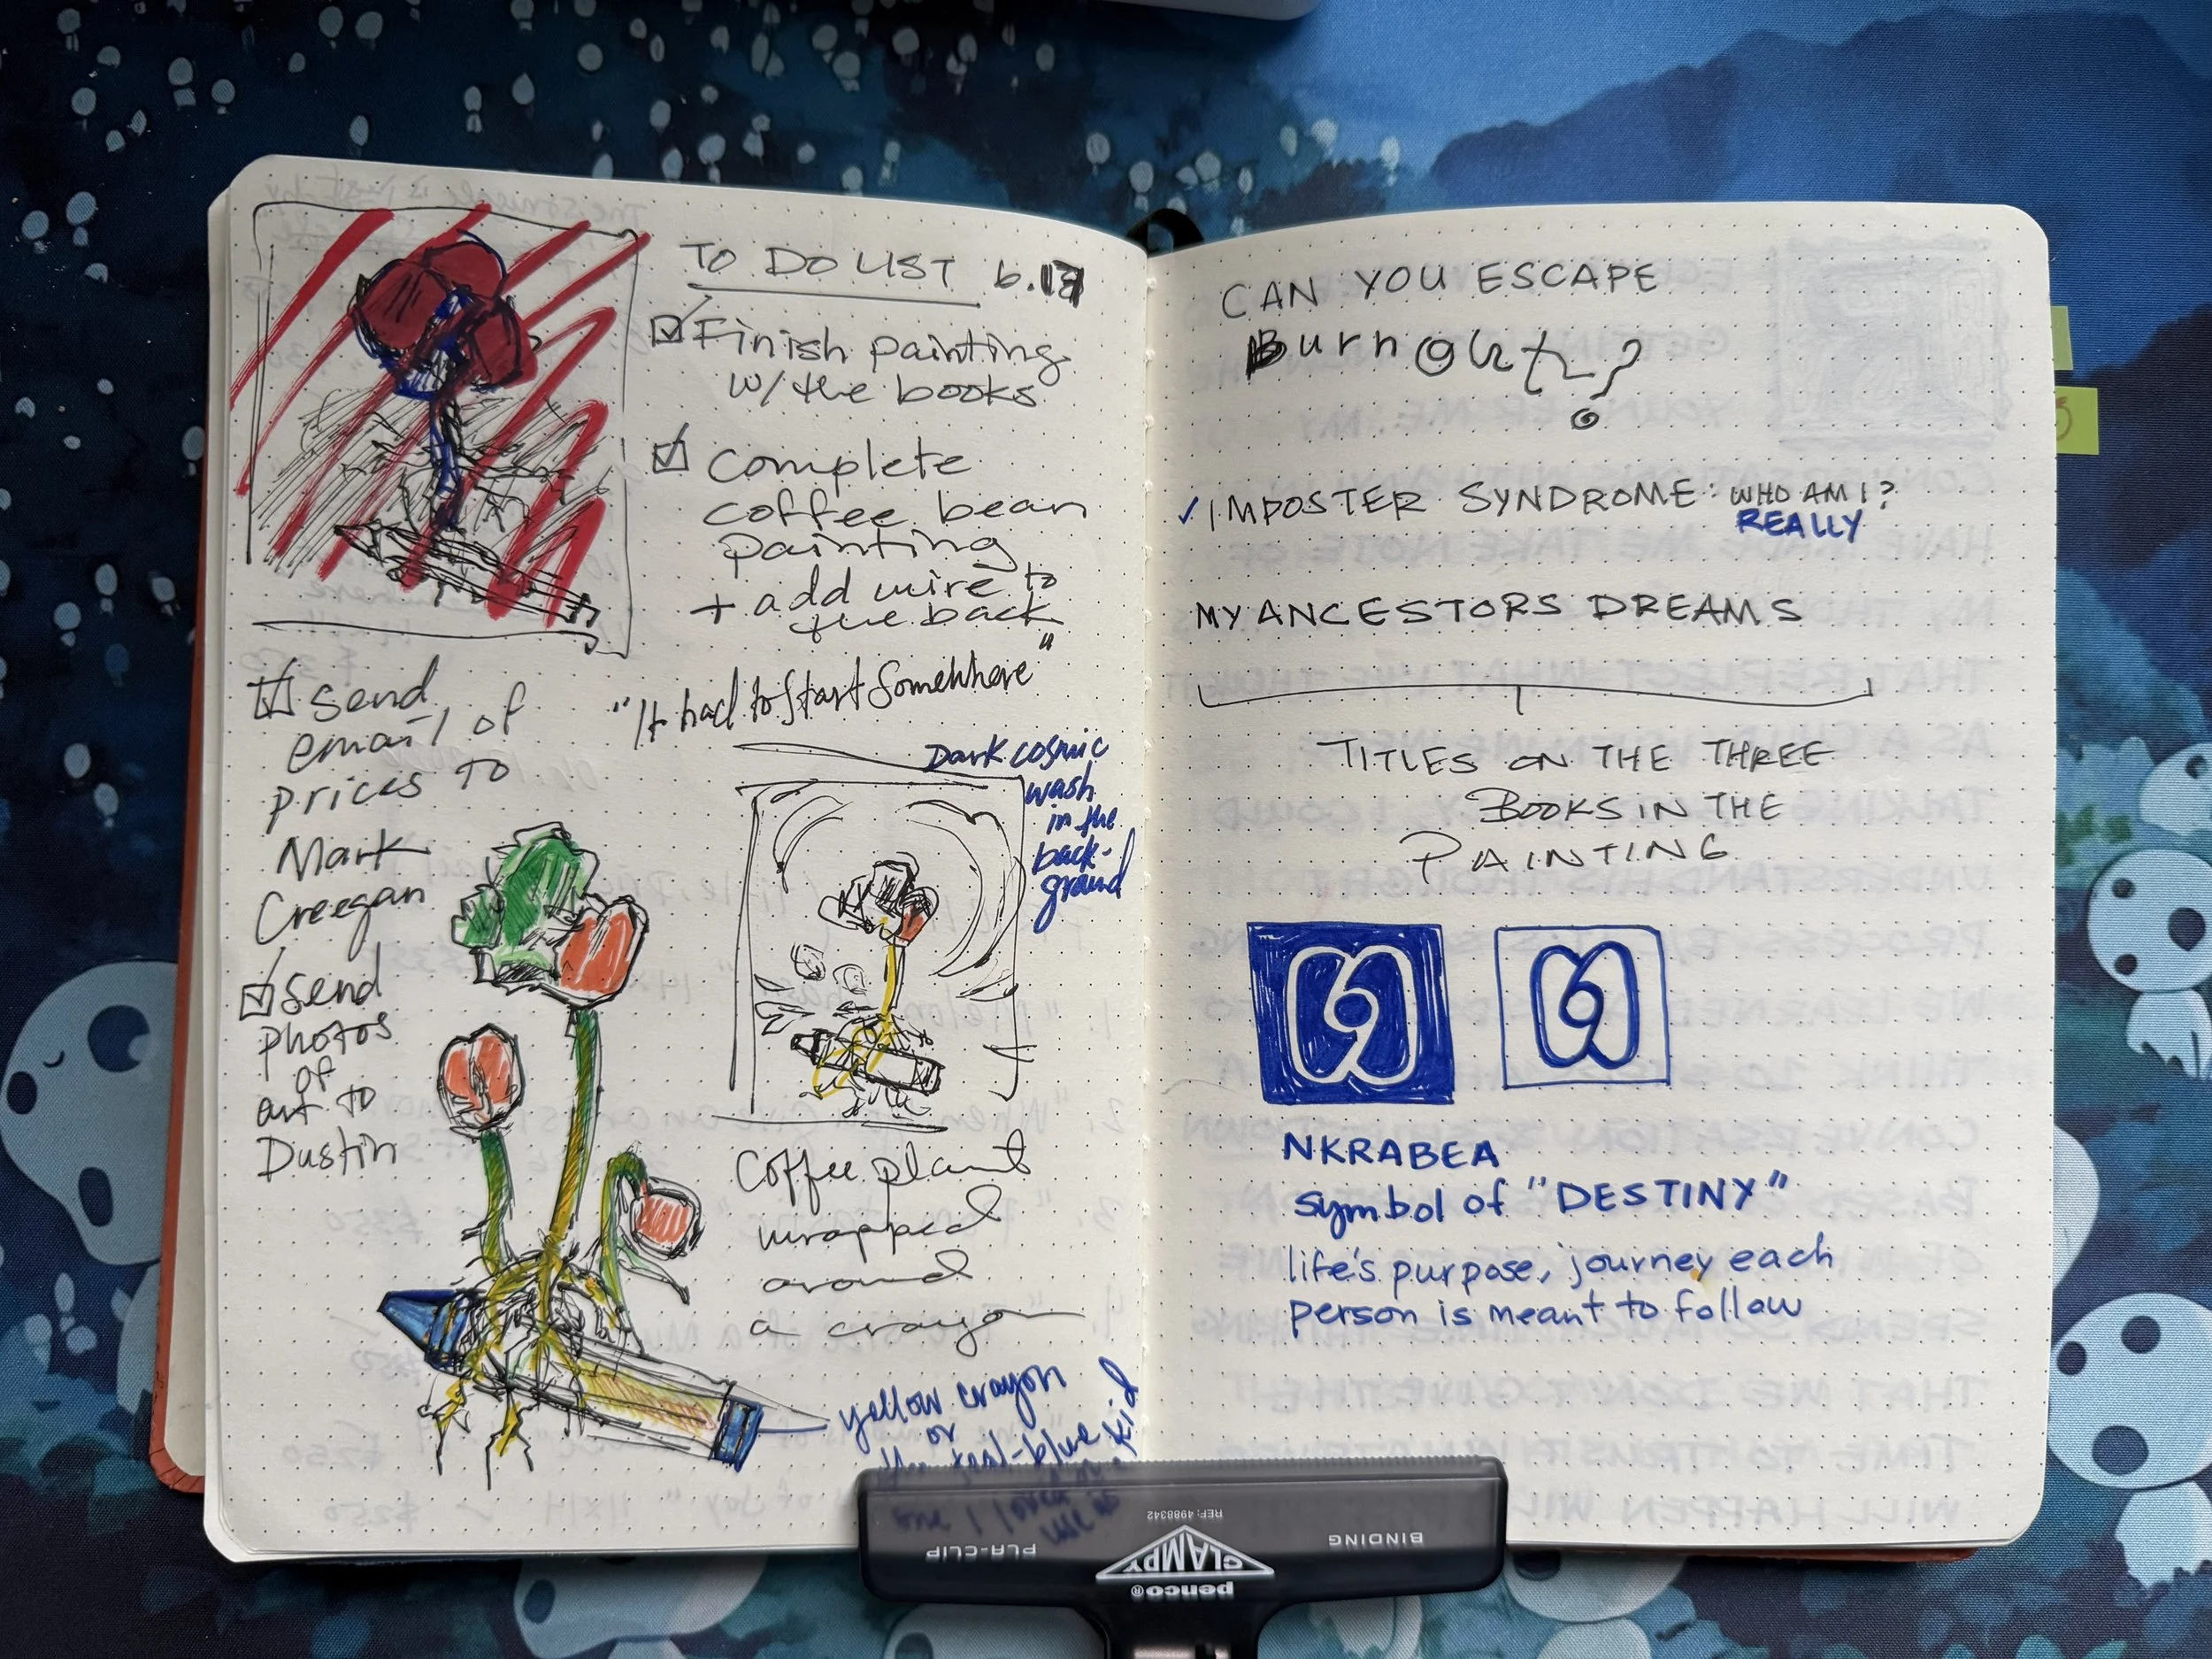 TO DO LIST 6.17
Finish painting
w/the books
complete
coffee bean
painting
+ add wire to
the back
send
email of
prices to
Mark
Creegan
send
photos
of
art to
Dustin
"It had to start somewhere"
Dark cosmic
wash
in the
back-
ground
Coffee plant
wrapped
around
a crayon
yellow crayon
or
the teal-blue
one I loved
as a kid
CAN YOU ESCAPE
Burnout?
✓ IMPOSTER SYNDROME: WHO AM I?
REALLY
MY ANCESTORS DREAMS
TITLES ON THE THREE
BOOKS IN THE
PAINTING
NKRABEA
symbol of "DESTINY"
life's purpose, journey each
person is meant to follow
PLA-CLIP
REF: 4988342
BINDING
CLAMPY
penco®